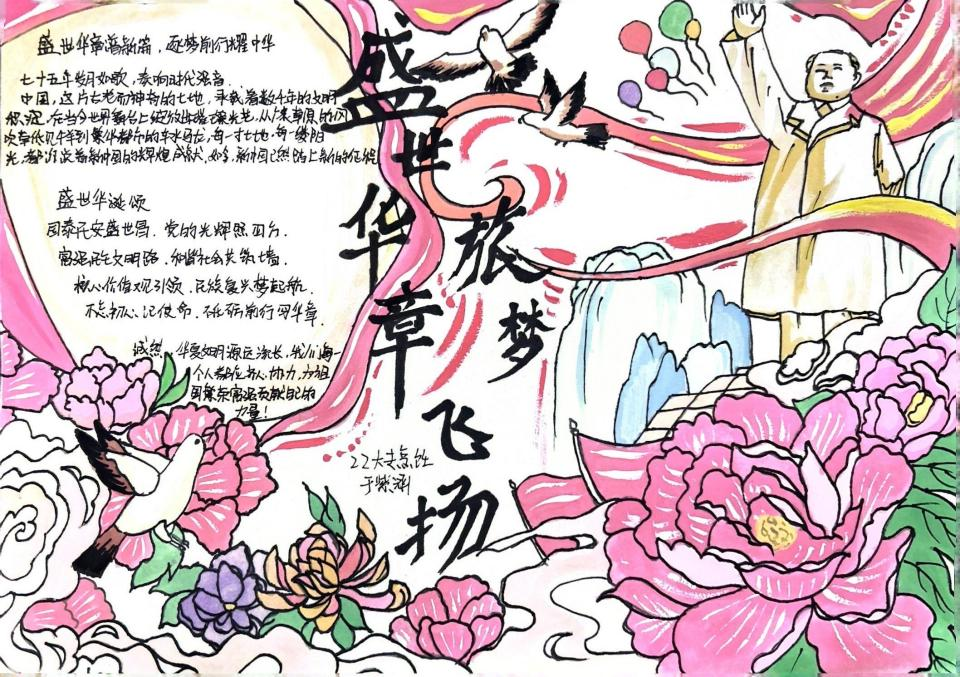 盛世华章谱新篇，逐梦前行耀中华
七十五年岁月如歌，奏响时代强音。
中国，这片古老而神奇的土地，承载着数千年的文明
积淀，在当今世界舞台上绽放出璀璨光芒，从广袤草原的风
吹草低见牛羊到繁华都市的车水马龙，每一寸土地，每一缕阳
光，都诉说着新中国的辉煌成就，如今，新中国已然踏上新的征程
盛世华诞颂
国泰民安盛世昌，党的光辉照四方，
富强民主文明路，和谐社会共筑墙，
核心价值观引领，民族复兴梦起航，
不忘初心记使命，砥砺前行同华章。
诚然，华夏文明源远流长，我们每一
个人都应齐心协力，为祖
国繁荣富强贡献自己的
力量！
盛世华章
旅梦飞扬
22大专